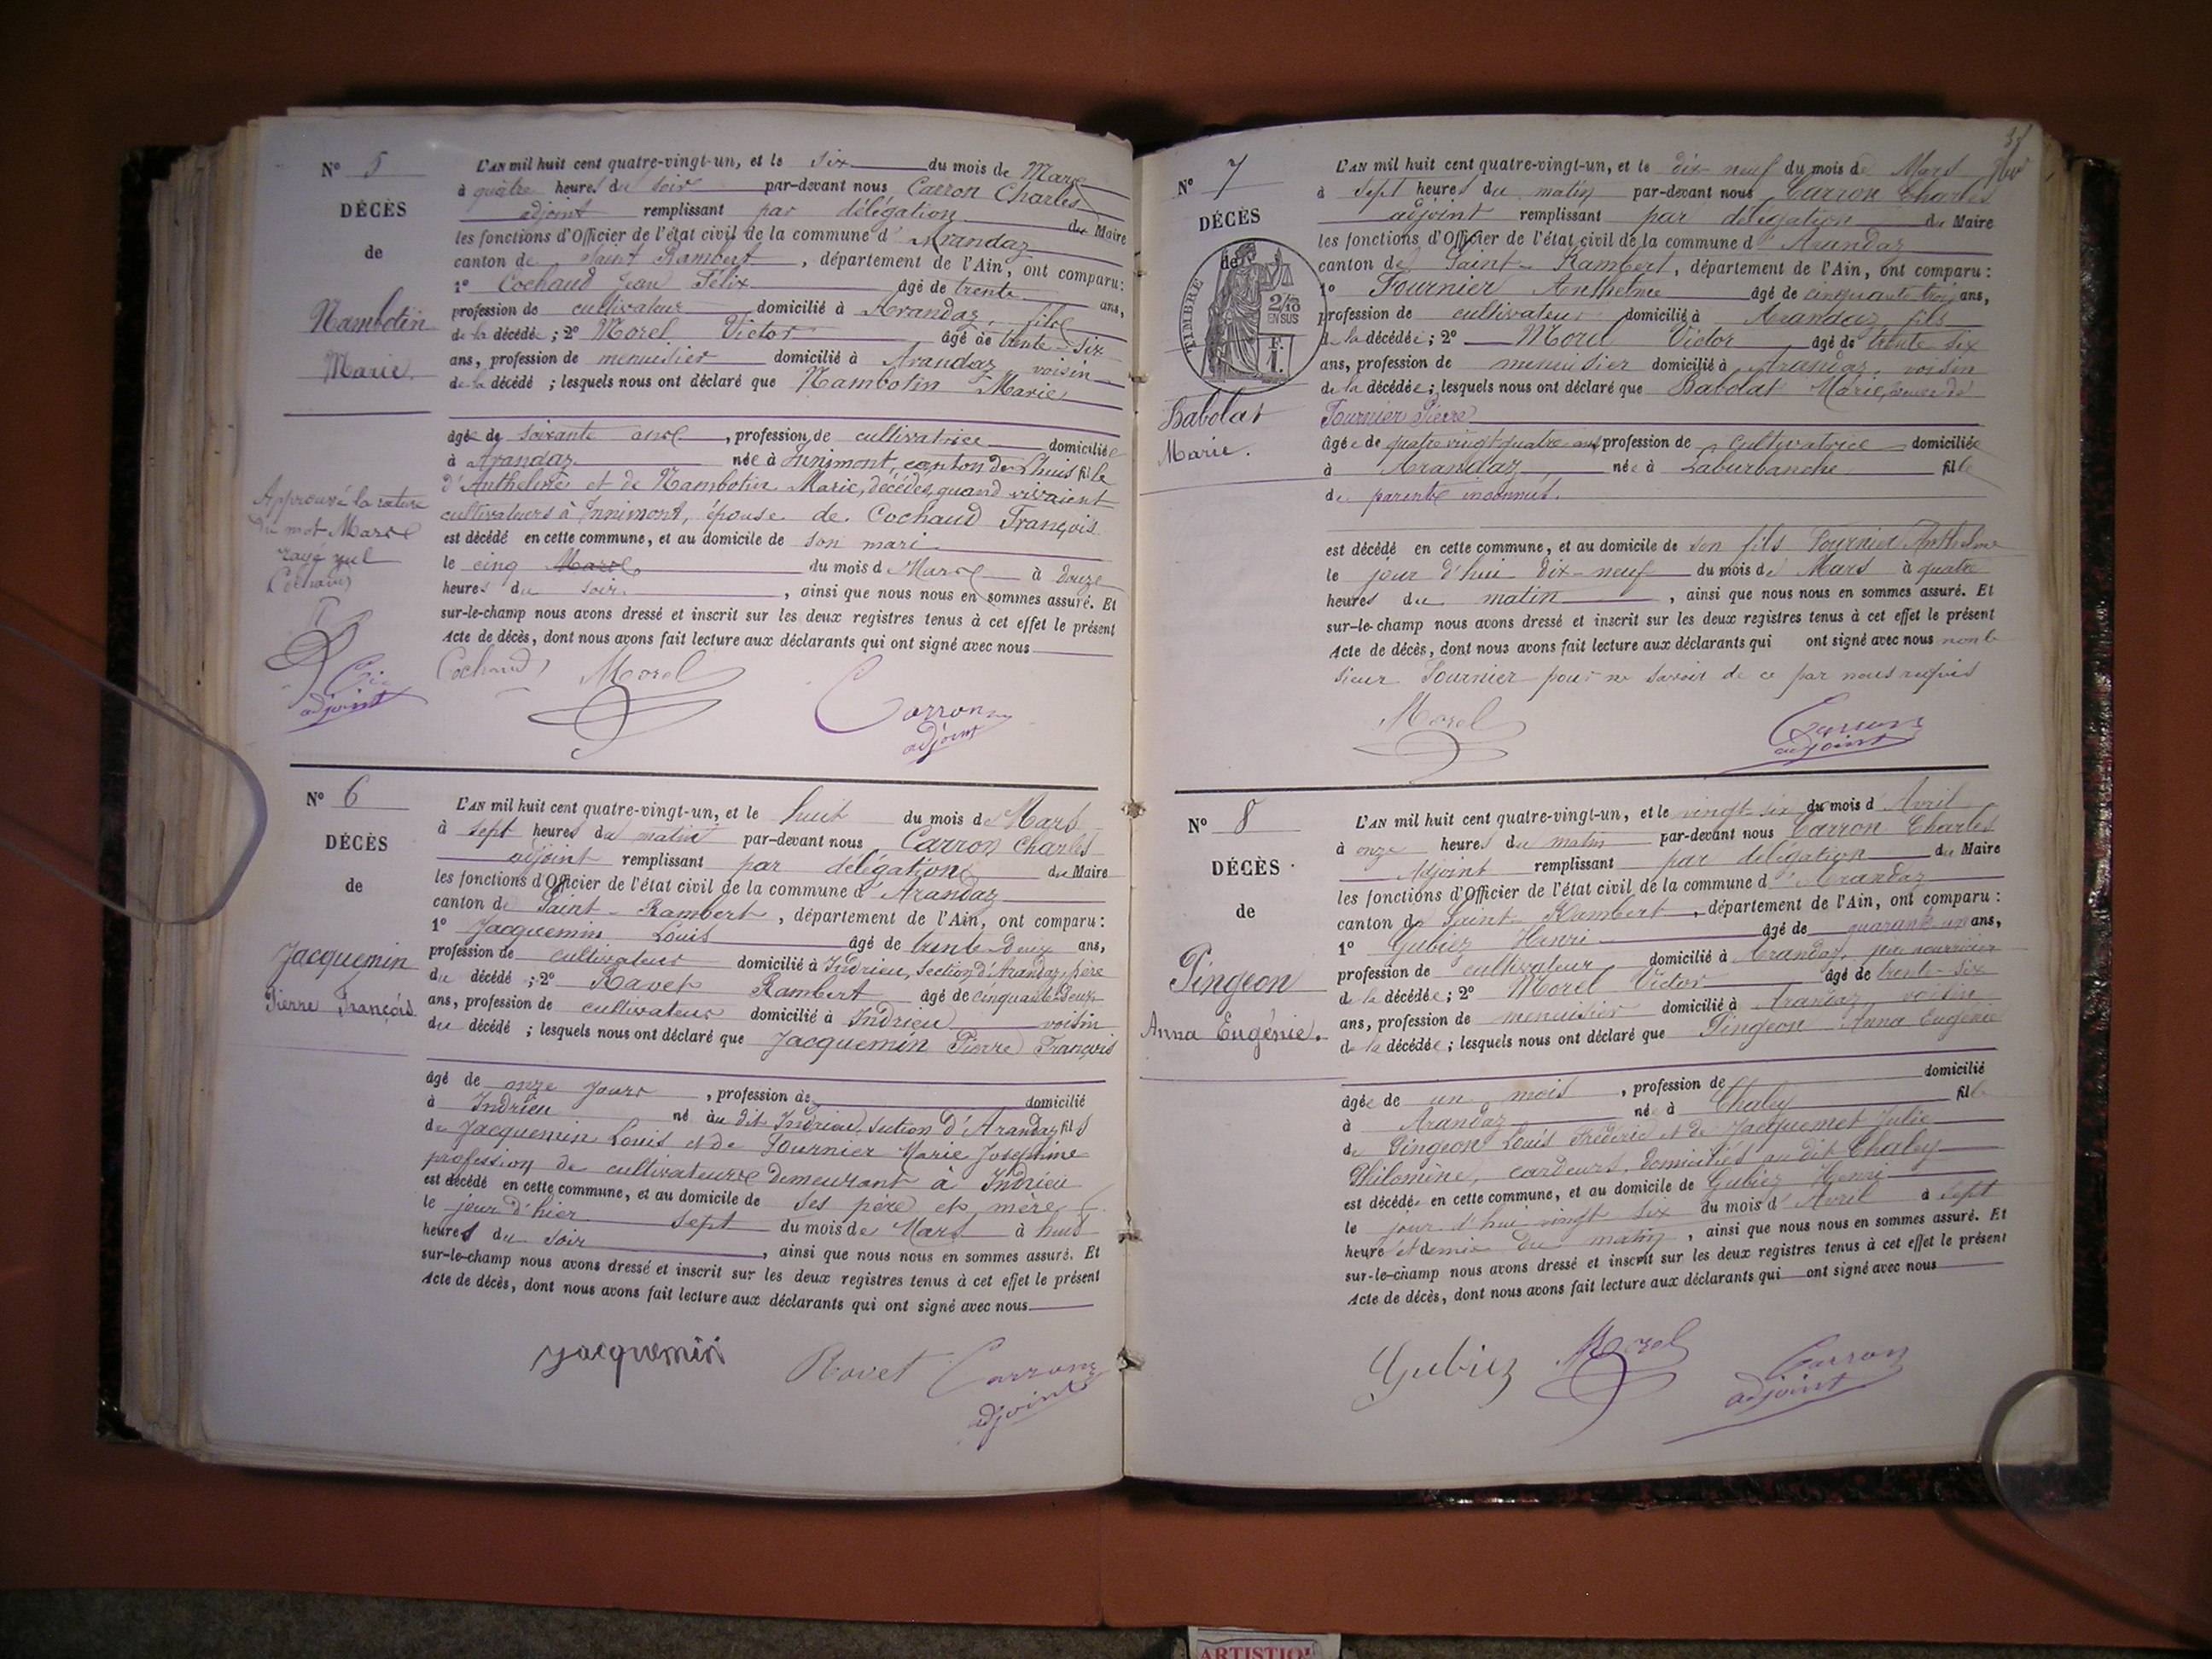 N° 5
DÉCÈS
de
Nambotin
Marie.
Approuvé la rature
du mot Mars
rayé nul
Cochaud
adjoint
L'AN mil huit cent quatre-vingt-un, et le six du mois de Mars
à quatre heures du soir par-devant nous Carron Charles
adjoint remplissant par délégation du Maire
les fonctions d'Officier de l'état civil de la commune d'Arandaz
canton de Saint Rambert, département de l'Ain, ont comparu :
1° Cochaud Jean Félix âgé de trente ans,
profession de cultivateur domicilié à Arandaz, fils
de la décédée ; 2° Morel Victor âgé de trente-six
ans, profession de menuisier domicilié à Arandaz voisin
de la décédé ; lesquels nous ont déclaré que Nambotin Marie
âgée de soixante ans, profession de cultivatrice domiciliée
à Arandaz née à Innimont, canton de Lhuis fille
d'Anthelme et de Nambotin Marie, décédés, quand vivaient
cultivateurs à Innimont, épouse de Cochaud François
est décédé en cette commune, et au domicile de son mari
le cinq Mars du mois de Mars à douze
heures du soir, ainsi que nous nous en sommes assuré. Et
sur-le-champ nous avons dressé et inscrit sur les deux registres tenus à cet effet le présent
Acte de décès, dont nous avons fait lecture aux déclarants qui ont signé avec nous
Cochaud Morel Carron
adjoint
N° 6
DÉCÈS
de
Jacquemin
Pierre François
L'AN mil huit cent quatre-vingt-un, et le huit du mois de Mars
à sept heures du matin par-devant nous Carron Charles
adjoint remplissant par délégation du Maire
les fonctions d'Officier de l'état civil de la commune d'Arandaz
canton de Saint-Rambert, département de l'Ain, ont comparu :
1° Jacquemin Louis âgé de trente-deux ans,
profession de cultivateur domicilié à Indrieu, section d'Arandaz, père
du décédé ; 2° Ravet Rambert âgé de cinquante deux
ans, profession de cultivateur domicilié à Indrieu voisin
du décédé ; lesquels nous ont déclaré que Jacquemin Pierre François
âgé de onze jours, profession de domicilié
à Indrieu né au dit Indrieu, section d'Arandaz fils
de Jacquemin Louis et de Fournier Marie Josephine
profession de cultivateurs demeurant à Indrieu
est décédé en cette commune, et au domicile de ses père et mère
le jour d'hier sept du mois de Mars à huit
heures du soir, ainsi que nous nous en sommes assuré. Et
sur-le-champ nous avons dressé et inscrit sur les deux registres tenus à cet effet le présent
Acte de décès, dont nous avons fait lecture aux déclarants qui ont signé avec nous
Jacquemin Ravet Carron
adjoint
N° 7
DÉCÈS
de
TIMBRE
2/10
EN SUS
1 F.
Babolat
Marie.
L'AN mil huit cent quatre-vingt-un, et le dix-neuf du mois de Mars
à sept heures du matin par-devant nous Carron Charles
adjoint remplissant par délégation du Maire
les fonctions d'Officier de l'état civil de la commune d'Arandaz
canton de Saint-Rambert, département de l'Ain, ont comparu :
1° Fournier Anthelme âgé de cinquante trois ans,
profession de cultivateur domicilié à Arandaz fils
de la décédée ; 2° Morel Victor âgé de trente six
ans, profession de menuisier domicilié à Arandaz, voisin
de la décédée ; lesquels nous ont déclaré que Babolat Marie, veuve de
Fournier Pierre
âgée de quatre vingt quatre ans, profession de cultivatrice domiciliée
à Arandaz née à Laburbanche fille
de parents inconnus.
est décédé en cette commune, et au domicile de son fils Fournier Anthelme
le jour d'hui dix-neuf du mois de Mars à quatre
heures du matin, ainsi que nous nous en sommes assuré. Et
sur-le-champ nous avons dressé et inscrit sur les deux registres tenus à cet effet le présent
Acte de décès, dont nous avons fait lecture aux déclarants qui ont signé avec nous non le
sieur Fournier pour ne savoir de ce par nous requis
Morel Carron
adjoint
N° 8
DÉCÈS
de
Pingeon
Anna Eugénie.
L'AN mil huit cent quatre-vingt-un, et le vingt six du mois d'Avril
à onze heures du matin par-devant nous Carron Charles
Adjoint remplissant par délégation du Maire
les fonctions d'Officier de l'état civil de la commune d'Arandaz
canton de Saint-Rambert, département de l'Ain, ont comparu :
1° Gubiez Henri âgé de quarante un ans,
profession de cultivateur domicilié à Arandaz, père nourricier
de la décédée ; 2° Morel Victor âgé de trente-six
ans, profession de menuisier domicilié à Arandaz voisin
de la décédée ; lesquels nous ont déclaré que Pingeon Anna Eugénie
âgée de un mois, profession de domicilié
à Arandaz née à Chaley fille
de Pingeon Louis Fréderic et de Jacquemet Julie
Philomène, cardeurs, domiciliés au dit Chaley
est décédée en cette commune, et au domicile de Gubiez Henri
le jour d'hui vingt six du mois d'Avril à sept
heure et demie du matin, ainsi que nous nous en sommes assuré. Et
sur-le-champ nous avons dressé et inscrit sur les deux registres tenus à cet effet le présent
Acte de décès, dont nous avons fait lecture aux déclarants qui ont signé avec nous
Gubiez Morel Carron
adjoint
ARTISTIQ